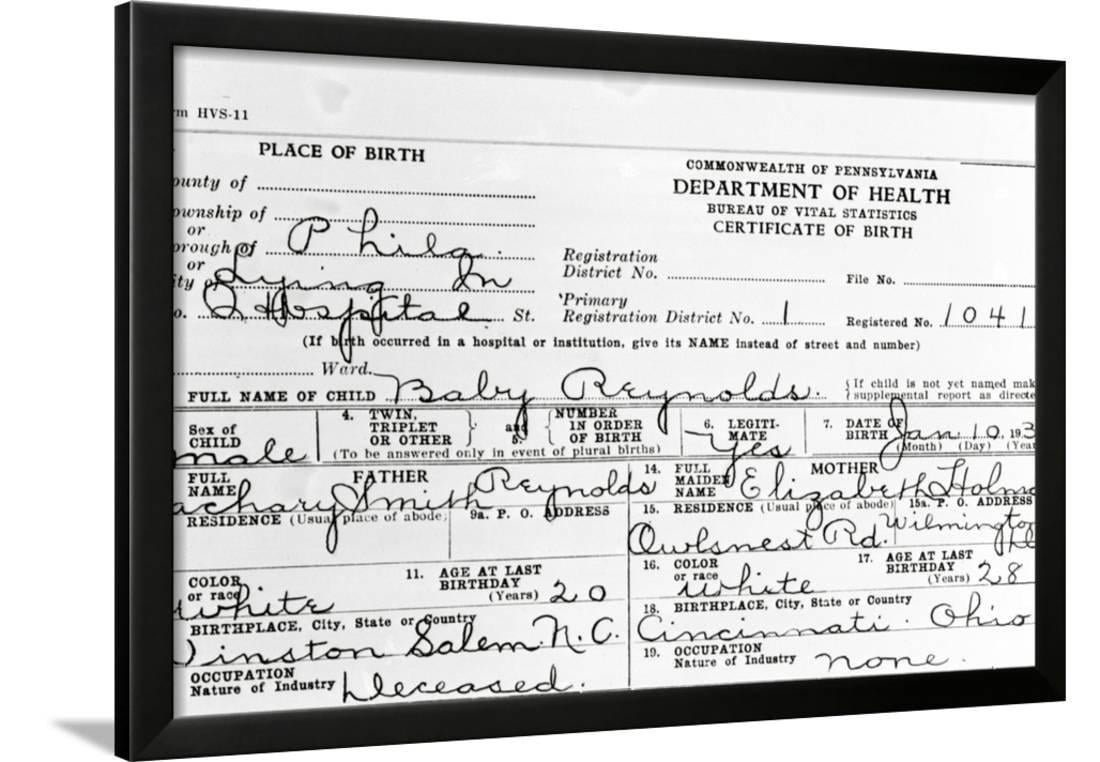 rm HVS-11
PLACE OF BIRTH
COMMONWEALTH OF PENNSYLVANIA
DEPARTMENT OF HEALTH
BUREAU OF VITAL STATISTICS
CERTIFICATE OF BIRTH
ounty of
ownship of
or
orough of Phila.
or
ity of Lying In
o. Hospital St.
Registration
District No. File No.
Primary
Registration District No. 1 Registered No. 1041
(If birth occurred in a hospital or institution, give its NAME instead of street and number)
Ward.
FULL NAME OF CHILD Baby Reynolds.
{If child is not yet named mak
supplemental report as directe
Sex of
CHILD
male
4. TWIN,
TRIPLET
OR OTHER } and 5. {
NUMBER
IN ORDER
OF BIRTH
(To be answered only in event of plural births)
6. LEGITI-
MATE
Yes
7. DATE OF
BIRTH Jan 10, 193
(Month) (Day) (Year
FATHER
FULL
NAME
achary Smith Reynolds
RESIDENCE (Usual place of abode)
9a. P. O. ADDRESS
COLOR
or race
White
11. AGE AT LAST
BIRTHDAY
(Years) 20
BIRTHPLACE, City, State or Country
inston Salem. N.C.
OCCUPATION
Nature of Industry Deceased.
MOTHER
14. FULL
MAIDEN
NAME Elizabeth Holm
15. RESIDENCE (Usual place of abode)
15a. P. O. ADDRESS
Owlsnest Rd. Wilmington
De
16. COLOR
or race
White
17. AGE AT LAST
BIRTHDAY
(Years) 28
18. BIRTHPLACE, City, State or Country
Cincinnati. Ohio
19. OCCUPATION
Nature of Industry none.